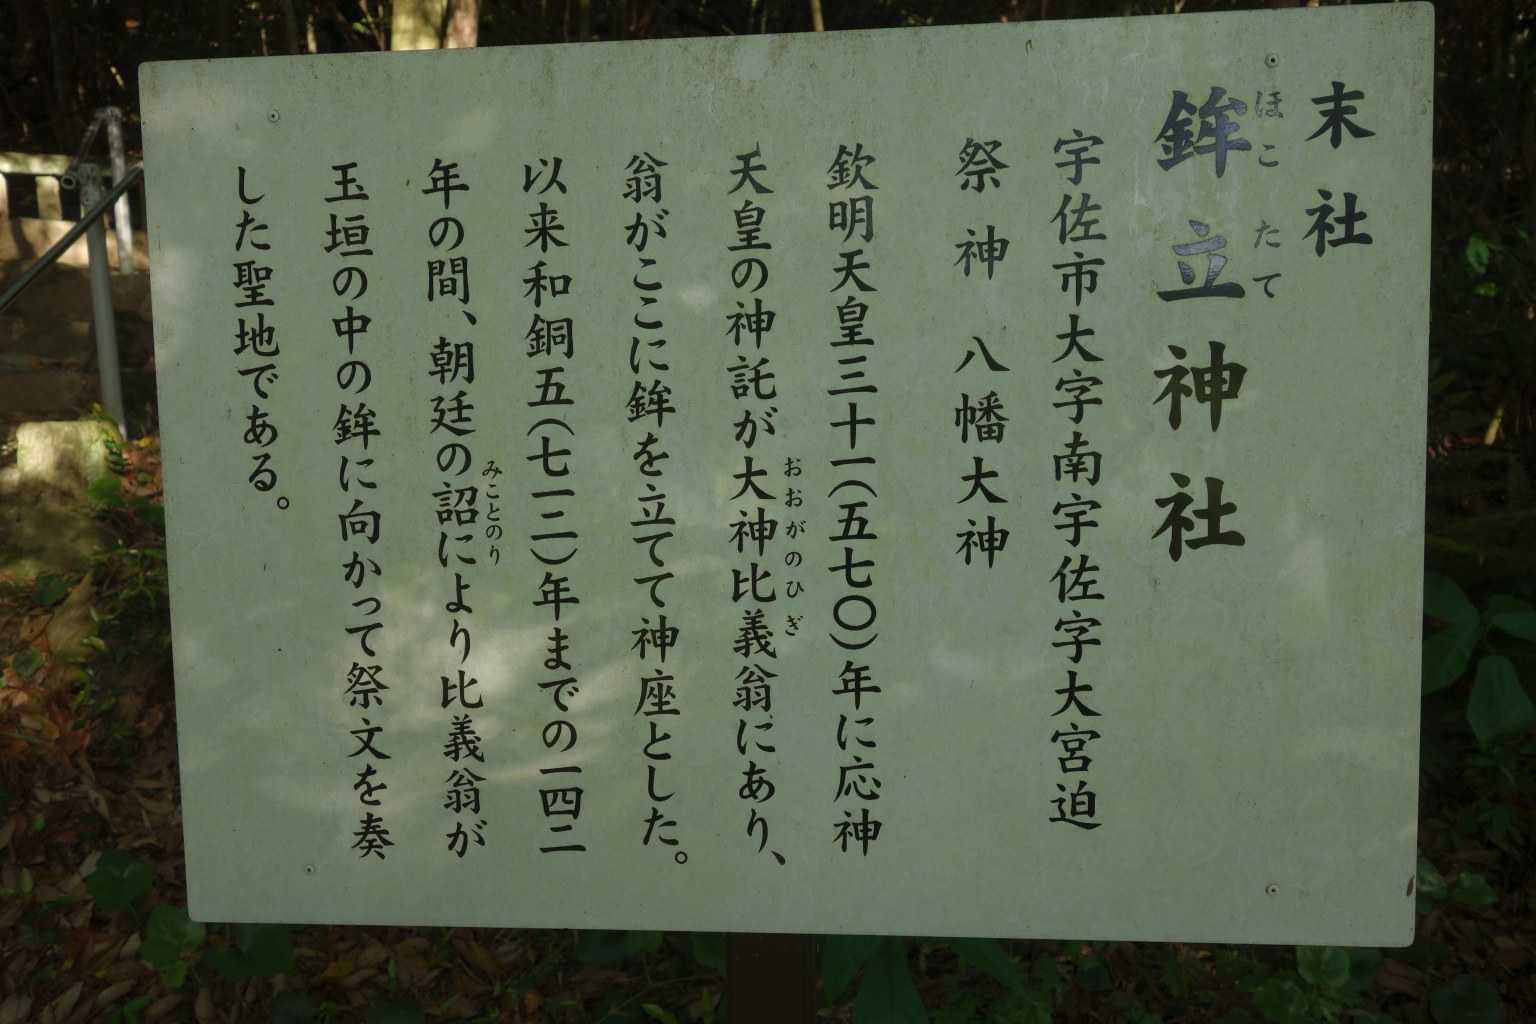 末社
鉾立神社
ほこたて
宇佐市大字南宇佐字大宮迫
祭神 八幡大神
欽明天皇三十一(五七〇)年に応神
天皇の神託が大神比義翁にあり、
おおがのひぎ
翁がここに鉾を立てて神座とした。
以来和銅五(七一二)年までの一四二
年の間、朝廷の詔により比義翁が
みことのり
玉垣の中の鉾に向かって祭文を奏
した聖地である。